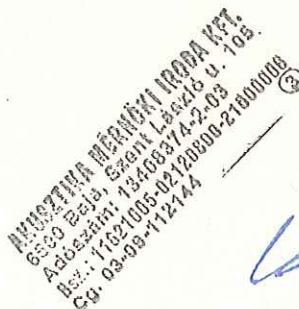 AKUSZTIKA MÉRNÖKI IRODA KFT.
6500 Baja, Szent László u. 105.
Adószám: 13468374-2-03
Bsz.: 11621005-02120800-21000000
Cg. 03-09-112144
3